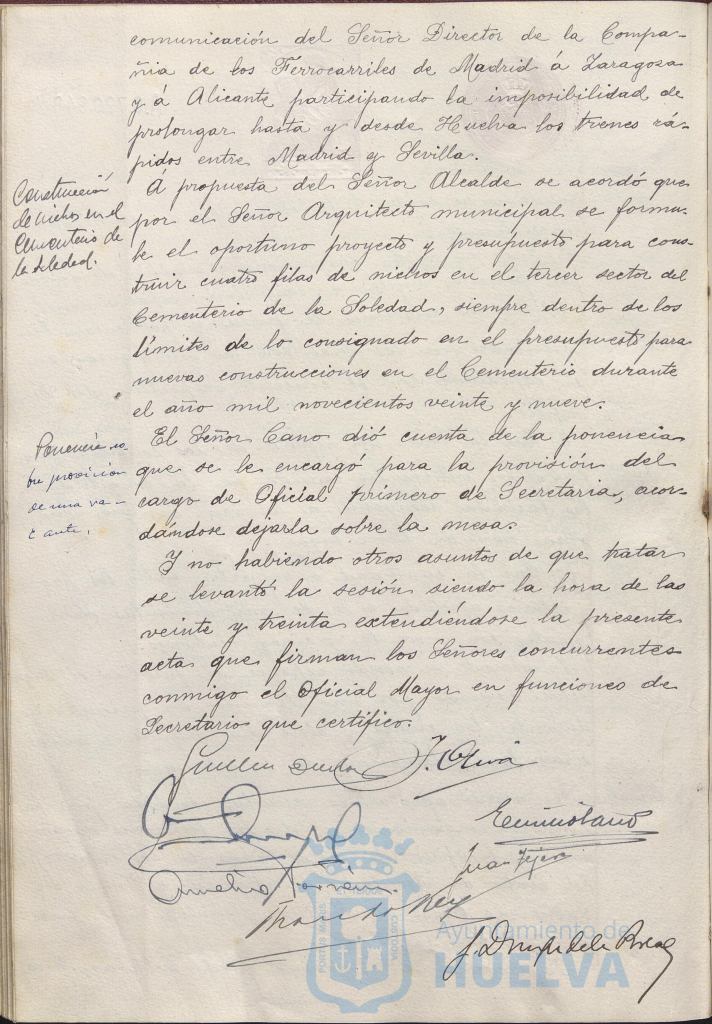 comunicación del Señor Director de la Compa-
ñia de los Ferrocarriles de Madrid á Zaragoza
y á Alicante participando la imposibilidad de
prolongar hasta y desde Huelva los trenes rá-
pidos entre Madrid y Sevilla.
Construcción
de nichos en el
Cementerio de
la Soledad.
Á propuesta del Señor Alcalde se acordó que
por el Señor Arquitecto municipal se formu-
le el oportuno proyecto y presupuesto para cons-
truir cuatro filas de nichos en el tercer sector del
Cementerio de la Soledad, siempre dentro de los
límites de lo consignado en el presupuesto para
nuevas construcciones en el Cementerio durante
el año mil novecientos veinte y nueve.
Ponencia so
bre provisión
de una va-
cante.
El Señor Cano dió cuenta de la ponencia
que se le encargó para la provisión del
cargo de Oficial primero de Secretaria, acor-
dándose dejarla sobre la mesa.
Y no habiendo otros asuntos de que tratar
se levantó la sesión siendo la hora de las
veinte y treinta extendiéndose la presente
acta que firman los Señores concurrentes
conmigo el Oficial Mayor en funciones de
Secretario que certifico.
J. Oliva
Juan
Ayuntamiento de
HUELVA